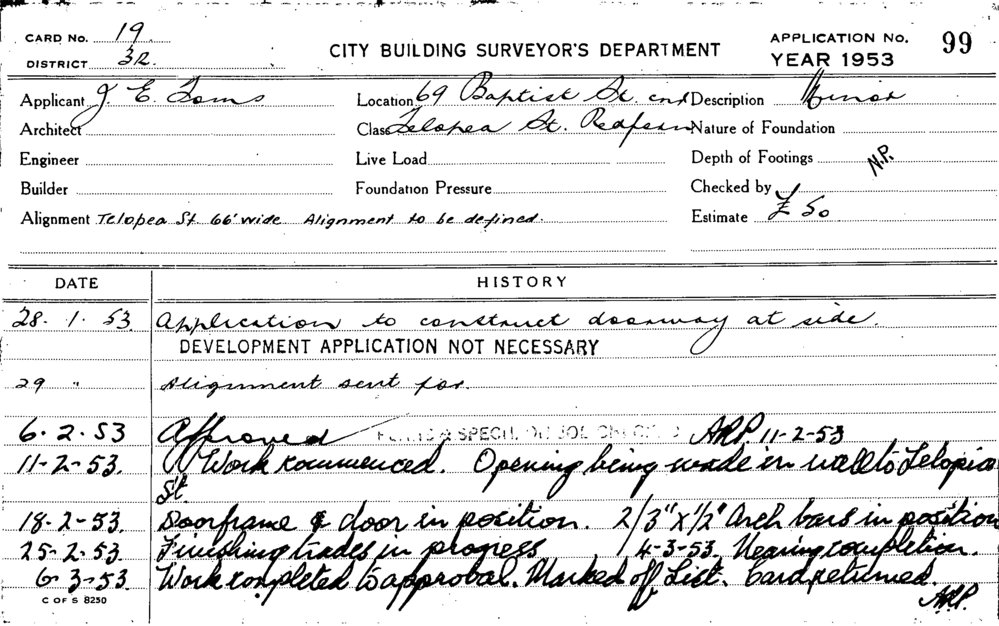 CARD No. 19
DISTRICT 32
CITY BUILDING SURVEYOR'S DEPARTMENT
APPLICATION No. 99
YEAR 1953
Applicant J. E. Toms
Location 69 Baptist St. cnr
Description Minor
Architect
Class Telopea St. Redfern
Nature of Foundation
Engineer
Live Load
Depth of Footings
N.P.
Builder
Foundation Pressure
Checked by
Alignment Telopea St. 66' wide. Alignment to be defined.
Estimate £ 50
DATE HISTORY
28. 1. 53 Application to construct doorway at side.
DEVELOPMENT APPLICATION NOT NECESSARY
29 " Alignment sent for.
6. 2. 53 Approved ARP. 11-2-53
11-2-53. Work commenced. Opening being made in wall to Telopia
St.
18-2-53. Doorframe & door in position. 2/3"x1/2" Arch bars in position
25-2-53. Finishing trades in progress 4-3-53. Nearing completion.
6-3-53. Work completed to approval. Marked off List. Card returned.
C OF S 8250
ARP.